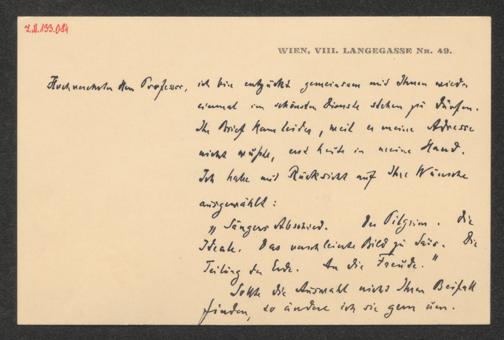 Z.H.133.084
WIEN, VIII. LANGEGASSE NR. 49.
Hochverehrter Herr Professor, ich bin entzückt gemeinsam mit Ihnen wieder
einmal im schönsten Dienste stehen zu dürfen.
Ihr Brief kam leider, weil er meine Adresse
nicht wußte, erst heute in meine Hand.
Ich habe mit Rücksicht auf Ihre Wünsche
ausgewählt:
„Sängers Abschied. Der Pilgrim. Die
Ideale. Das verschleierte Bild zu Sais. Die
Teilung der Erde. An die Freude."
Sollte die Auswahl nicht Ihren Beifall
finden, so ändere ich sie gern um.